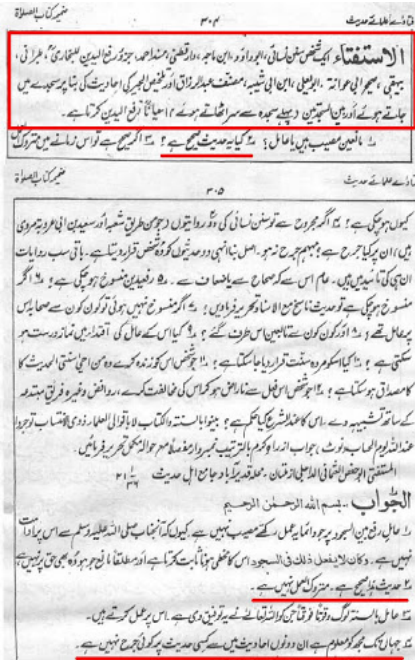 ضمیر کتاب الصلاة
۳۰۴
فتاوٰے علمائے حدیث
الاستفتاء ایک شخص سنن نسائی، ابوداؤد، ابن ماجہ، دارقطنی، مسند احمد، جزء رفع الیدین للبخاری، طبرانی،
بیہقی، صحیح ابی عوانہ، ابو یعلی، ابن ابی شیبہ، مصنف عبدالرزاق اور تلخیص الحبیر کی احادیث کی بنا پر سجدے میں
جاتے ہوئے اور بین السجدتین (پہلے سجدہ سے سر اٹھاتے ہوئے) احیاناً رفع الیدین کرتا ہے۔
۱؎ مانعین مصیب ہیں یا عامل؟ ۲؎ کیا یہ حدیث صحیح ہے؟ ۳؎ اگر صحیح ہے تو اس زمانے میں متروک العمل
ضمیر کتاب الصلاة
۳۰۵
فتاوٰے علمائے حدیث
کیوں ہو چکی ہے؟ ۴؎ اگر مجروح ہے تو سنن نسائی کی دو روایتوں (جو من طریق شعبہ اور سعید بن ابی عروبہ مروی
ہیں) ان پر کیا جرح ہے؟ مبہم جرح نہ ہو۔ اصل بنا انہی دو حدیثوں کو وہ شخص قرار دیتا ہے۔ باقی سب روایات
ان ہی کی تائید میں ہیں۔ عام اس سے کہ صحاح سے یا ضعاف سے۔ ۵؎ رفعیدین منسوخ ہو چکی ہے؟ ۶؎ اگر
منسوخ ہو چکی ہے تو حدیث ناسخ مع الاسناد تحریر فرمادیں؟ ۷؎ اگر منسوخ نہیں ہوئی تو کون کون سے صحابہ اس
پر عامل تھے؟ ۸؎ اور کون کون سے تابعین اس طرف گئے؟ ۹؎ کیا اس کے عامل کی اقتدا میں نماز درست ہو
سکتی ہے؟ ۱۰؎ کیا اسکو مردہ سنت قرار دیا جا سکتا ہے؟ ۱۱؎ جو شخص اس کو زندہ کرے وہ من احیٰ سنتی الحدیث کا
مصداق ہو سکتا ہے؟ ۱۲؎ جو شخص اس فعل سے ناراض ہو کر اس کی مخالفت کرے، روافض وغیرہ فریق مبتدعہ
کے ساتھ تشبیہ دے۔ اس کا عند الشرع کیا حکم ہے؟ بینوا بالسنة والکتاب لا باقوال العلماء ذوی الانتساب توجروا
عند اللہ یوم الحساب (نوٹ) جواب ازراہ کرم بالترتیب نمبروار مفصلاً مع حوالہ مکمل تحریر فرمائیں۔
الجواب۔ بسم اللہ الرحمٰن الرحیم
۱؎ عامل رفع بین السجود پر جو دائما یہ عمل رکھے مصیب نہیں ہے۔ کیوں کہ آنجناب صلی اللہ علیہ وسلم سے اس پر مداومت ثابت
نہیں ہے۔ وکان لا یفعل ذلک فی السجود اس کا مخفی ہونا ثابت کرتا ہے اور مطلقاً مانع جو ہو وہ بھی حق پر نہیں ہے
۲؎ حدیث ہذا صحیح ہے۔ متروک العمل نہیں ہے۔
۳؎ عامل بالسنہ لوگ وقتاً فوقتاً جن کو اللہ تعالٰے نے یہ توفیق دی ہے۔ اس پر عمل کرتے ہیں۔
۴؎ جہاں تک مجھ کو معلوم ہے ان دونوں احادیث میں سے کسی حدیث پر کوئی جرح نہیں ہے۔